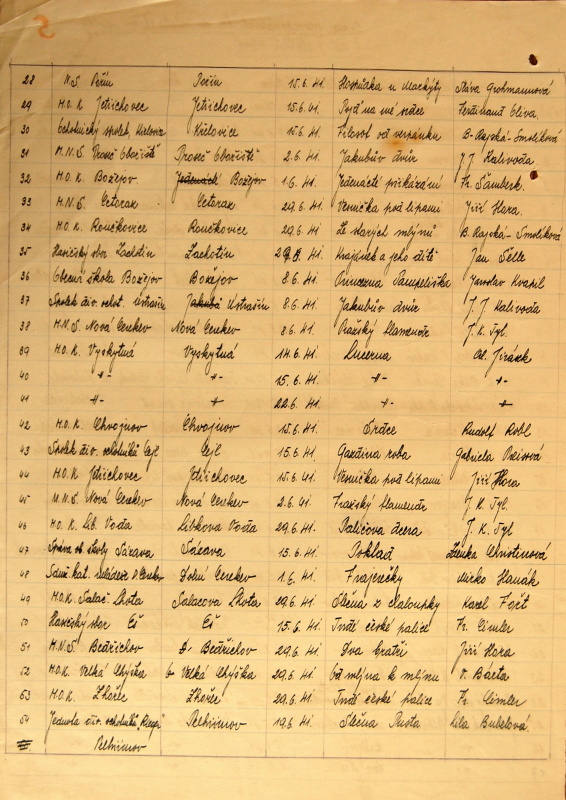 5
28 N.S. Pořín Pořín 15.6.41. Hospůdka u Mackyty Sláva Grohmannová
29 M.O.K. Jetřichovec Jetřichovec 15.6.41. Pojď na mé srdce Ferdinand Oliva
30 Ochotnický spolek, Křelovice Křelovice 15.6.41. Filosof od verpánku B. Rajská-Smolíková
31 M.N.S. Proseč Obořiště Proseč Obořiště 2.6.41. Jakubův dvůr J.J. Kalivoda
32 M.O.K. Božejov Božejov 1.6.41. Jedenácté přikázání Fr. Šamberk.
33 M.N.S. Cetoraz Cetoraz 29.6.41. Vesnička pod lipami Jiří Hora.
34 M.O.K. Roučkovice Roučkovice 29.6.41. Ze starých mlýnů B. Rajská-Smolíková
35 Hasičský sbor Zachotín Zachotín 29.6.41. Krajánek a jeho dítě Jan Selle
36 Obecná škola Božejov Božejov 8.6.41. Princezna Pampeliška Jaroslav Kvapil
37 Spolek div. ochot. Ustrašín Ustrašín 8.6.41. Jakubův dvůr J.J. Kalivoda
38 M.N.S. Nová Cerekev Nová Cerekev 8.6.41. Pražský flamendr J.K. Tyl.
39 M.O.K. Vyskytná Vyskytná 14.6.41. Lucerna Al. Jirásek
40 -"- -"- 15.6.41. -"- -"-
41 -"- -"- 22.6.41. -"- -"-
42 M.O.K. Chvojnov Chvojnov 15.6.41. Srdce Rudolf Robl
43 Spolek div. ochotníků Cejl Cejl 15.6.41. Gazdina roba Gabriela Preisová
44 M.O.K. Jetřichovec Jetřichovec 15.6.41. Vesnička pod lipami Jiří Hora
45 M.N.S. Nová Cerekev Nová Cerekev 2.6.41. Pražský flamendr J.K. Tyl.
46 M.O.K. Lib. Voda Libkova Voda 29.6.41. Paličova dcera J.K. Tyl
47 Správa ob. školy Sázava Sázava 15.6.41. Poklad Zdenka
48 Sdruž. kat. mládeže D. Cerekev Dolní Cerekev 1.6.41. Frajerečky Mirko Hanák
49 M.O.K. Salač. Lhota Salačova Lhota 29.6.41. Slečna z chaloupky Karel Fořt
50 Hasičský sbor Eš Eš 15.6.41. Tvrdé české palice Fr. Cimler
51 M.N.S. Bedřichov D. Bedřichov 29.6.41. Dva bratři Jiří Hora
52 M.O.K. Velká Chyška Velká Chyška 29.6.41. Od mlýna k mlýnu V. Bárta
53 M.O.K. Lhořec Lhořec 29.6.41. Tvrdé české palice Fr. Cimler
54 Jednota div. ochotníků "Rieger" Pelhřimov 19.6.41. Slečna Pusta Lila Bubelová
Pelhřimov